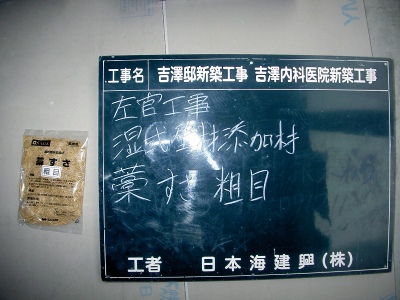 工事名 吉澤邸新築工事 吉澤内科医院新築工事
左官工事
湿式塗材添加材
藁すさ 粗目
工者 日本海建興(株)
藁すさ
粗目